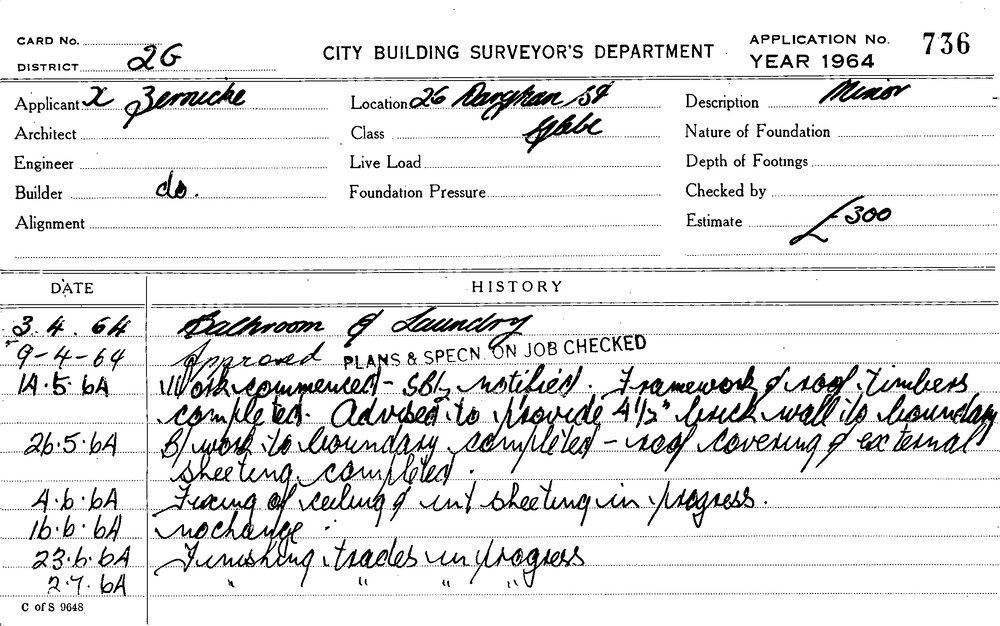 CARD No.
DISTRICT 2G
CITY BUILDING SURVEYOR'S DEPARTMENT
APPLICATION No. 736
YEAR 1964
Applicant X Zernicke
Location 26 Darghan St
Description Minor
Architect
Class Glebe
Nature of Foundation
Engineer
Live Load
Depth of Footings
Builder do.
Foundation Pressure
Checked by
Alignment
Estimate £300
DATE
HISTORY
3.4.64 Bathroom & Laundry
9-4-64 Approved PLANS & SPECN. ON JOB CHECKED
14.5.64 Work commenced - notified. Framework & roof timbers
completed. Advised to provide 4½" brick wall to boundary
26.5.64 B/work to boundary completed - roof covering & external
sheeting completed.
4.6.64 Fixing of ceiling & int sheeting in progress.
16.6.64 no change.
23.6.64 Finishing trades in progress
2.7.64 " " " "
C of S 9648